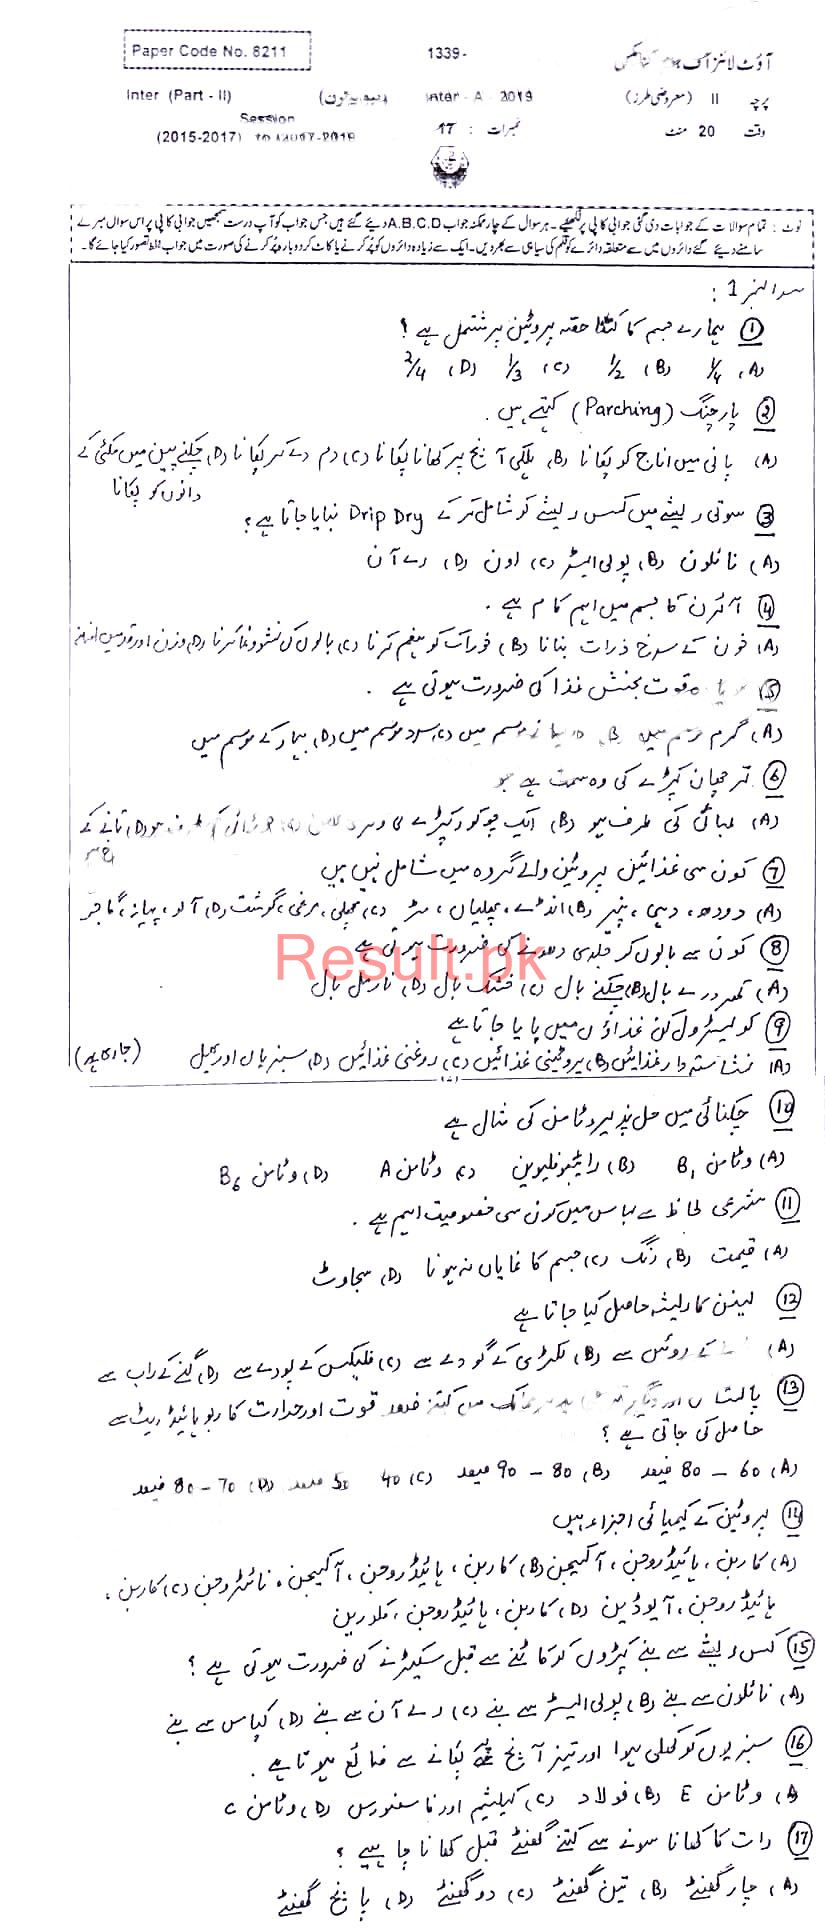 Paper Code No. 8211
1339-
آؤٹ لائنز آف ہوم اکنامکس
Inter (Part - II)
Inter - A - 2019
پرچہ II (معروضی طرز)
Session
(2015-2017) to (2017-2019)
نمبرات : 17
وقت 20 منٹ
نوٹ : تمام سوالات کے جوابات دی گئی جوابی کاپی پر لکھئیے۔ ہر سوال کے چار ممکنہ جواب A.B.C.D دیئے گئے ہیں جس جواب کو آپ درست سمجھیں جوابی کاپی پر اس سوال نمبر کے
سامنے دیئے گئے دائروں میں سے متعلقہ دائرے کو قلم کی سیاہی سے بھر دیں۔ ایک سے زیادہ دائروں کو پُر کرنے یا کاٹ کر دوبارہ پُر کرنے کی صورت میں جواب غلط تصور کیا جائے گا۔
سوال نمبر 1 :
① ہمارے جسم کا کتنا حصہ پروٹین پر مشتمل ہے ؟
(A) 1/4 (B) 1/2 (C) 1/3 (D) 2/4
② پارچنگ (Parching) کہتے ہیں .
(A) پانی میں اناج کو پکانا (B) ہلکی آنچ پر کھانا پکانا (C) دم دے کر پکانا (D) چکنے پین میں مکئی کے
دانوں کو پکانا
③ سوتی ریشے میں کس ریشے کو شامل کر کے Drip Dry بنایا جاتا ہے ؟
(A) نائلون (B) پولی ایسٹر (C) اون (D) رے آن
④ آئرن کا جسم میں اہم کام ہے .
(A) خون کے سرخ ذرات بنانا (B) خوراک کو ہضم کرنا (C) بالوں کی نشوونما کرنا (D) وزن اور قد میں اضافہ
⑤ قوت بخش غذا کی ضرورت ہوتی ہے .
(A) گرم موسم میں (B) موسم میں (C) سرد موسم میں (D) بہار کے موسم میں
⑥ ترچھان کپڑے کی وہ سمت ہے جو
(A) لمبائی کی طرف ہو (B) ایک چوکور کپڑے کی (C) چوڑائی کی طرف ہو (D) تانے کے
رخ ہو
⑦ کون سی غذائیں پروٹین والے گروہ میں شامل نہیں ہیں
(A) دودھ، دہی، پنیر (B) انڈے، پھلیاں، مٹر (C) مچھلی، مرغی، گوشت (D) آلو، پیاز، گاجر
⑧ کون سے بالوں کو جلدی دھونے کی ضرورت ہوتی ہے
(A) کھردرے بال (B) چکنے بال (C) خشک بال (D) نارمل بال
Result.pk
⑨ کولیسٹرول کن غذاؤں میں پایا جاتا ہے
(A) نشاستہ دار غذائیں (B) پروٹینی غذائیں (C) روغنی غذائیں (D) سبزیاں اور پھل
(جاری ہے)
⑩ چکنائی میں حل پذیر وٹامن کی مثال ہے
(A) وٹامن B1 (B) رائیبوفلیوین (C) وٹامن A (D) وٹامن B6
⑪ شرعی لحاظ سے لباس میں کون سی خصوصیت اہم ہے .
(A) قیمت (B) رنگ (C) جسم کا نمایاں نہ ہونا (D) سجاوٹ
⑫ لینن کا ریشہ حاصل کیا جاتا ہے
(A) کے روئیں سے (B) لکڑی کے گودے سے (C) فلیکس کے پودے سے (D) گنے کے راب سے
⑬ پاکستان اور دیگر ممالک میں کتنے فیصد قوت اور حرارت کاربوہائیڈریٹ سے
حاصل کی جاتی ہے ؟
(A) 60 – 80 فیصد (B) 80 – 90 فیصد (C) 40 50 فیصد (D) 70 – 80 فیصد
⑭ پروٹین کے کیمیائی اجزاء ہیں
(A) کاربن، ہائیڈروجن، آکسیجن (B) کاربن، ہائیڈروجن، آکسیجن، نائٹروجن (C) کاربن،
ہائیڈروجن، آیوڈین (D) کاربن، ہائیڈروجن، کلورین
⑮ کس ریشے سے بنے کپڑوں کو کاٹنے سے قبل سکیڑنے کی ضرورت ہوتی ہے ؟
(A) نائلون سے بنے (B) پولی ایسٹر سے بنے (C) رے آن سے بنے (D) کپاس سے بنے
⑯ سبزیوں کو کھلی ہوا اور تیز آنچ پر پکانے سے ضائع ہوتا ہے .
(A) وٹامن E (B) فولاد (C) کیلشیم اور فاسفورس (D) وٹامن C
⑰ رات کا کھانا سونے سے کتنے گھنٹے قبل کھانا چاہیے ؟
(A) چار گھنٹے (B) تین گھنٹے (C) دو گھنٹے (D) پانچ گھنٹے